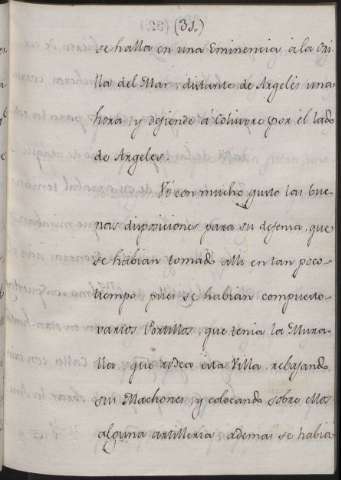 (31.)
se halla en una Eminencia á la Ori-
lla del Mar, distante de Argeles una
hora, y defiende á Coliuvre por el lado
de Argeles.
Vi con mucho gusto las bue-
nas disposiciones para su defensa, que
se habian tomado alli en tan poco
tiempo pues se habian compuesto
varios Portillos, que tenia la Mura-
lla, que rodea esta Villa, rebajando
sus Machones, y colocando sobre ellos
alguna artilleria, ademas se habia